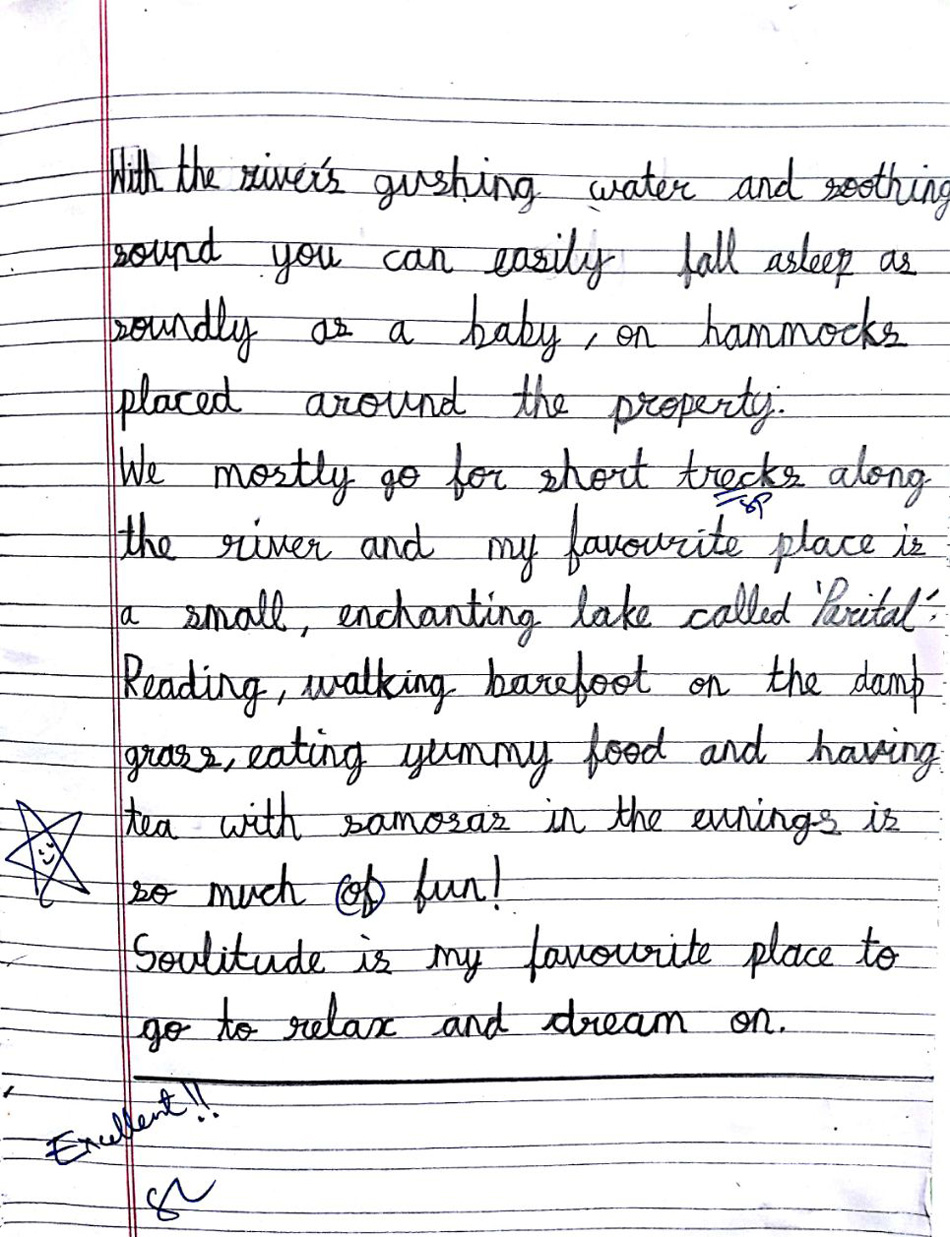 With the river's gushing water and soothing
sound you can easily fall asleep as
soundly as a baby, on hammocks
placed around the property.
We mostly go for short trecks along
sp
the river and my favourite place is
a small, enchanting lake called 'Parital'.
Reading, walking barefoot on the damp
grass, eating yummy food and having
tea with samosas in the evnings is
so much of fun!
Soulitude is my favourite place to
go to relax and dream on.
Excellent!!